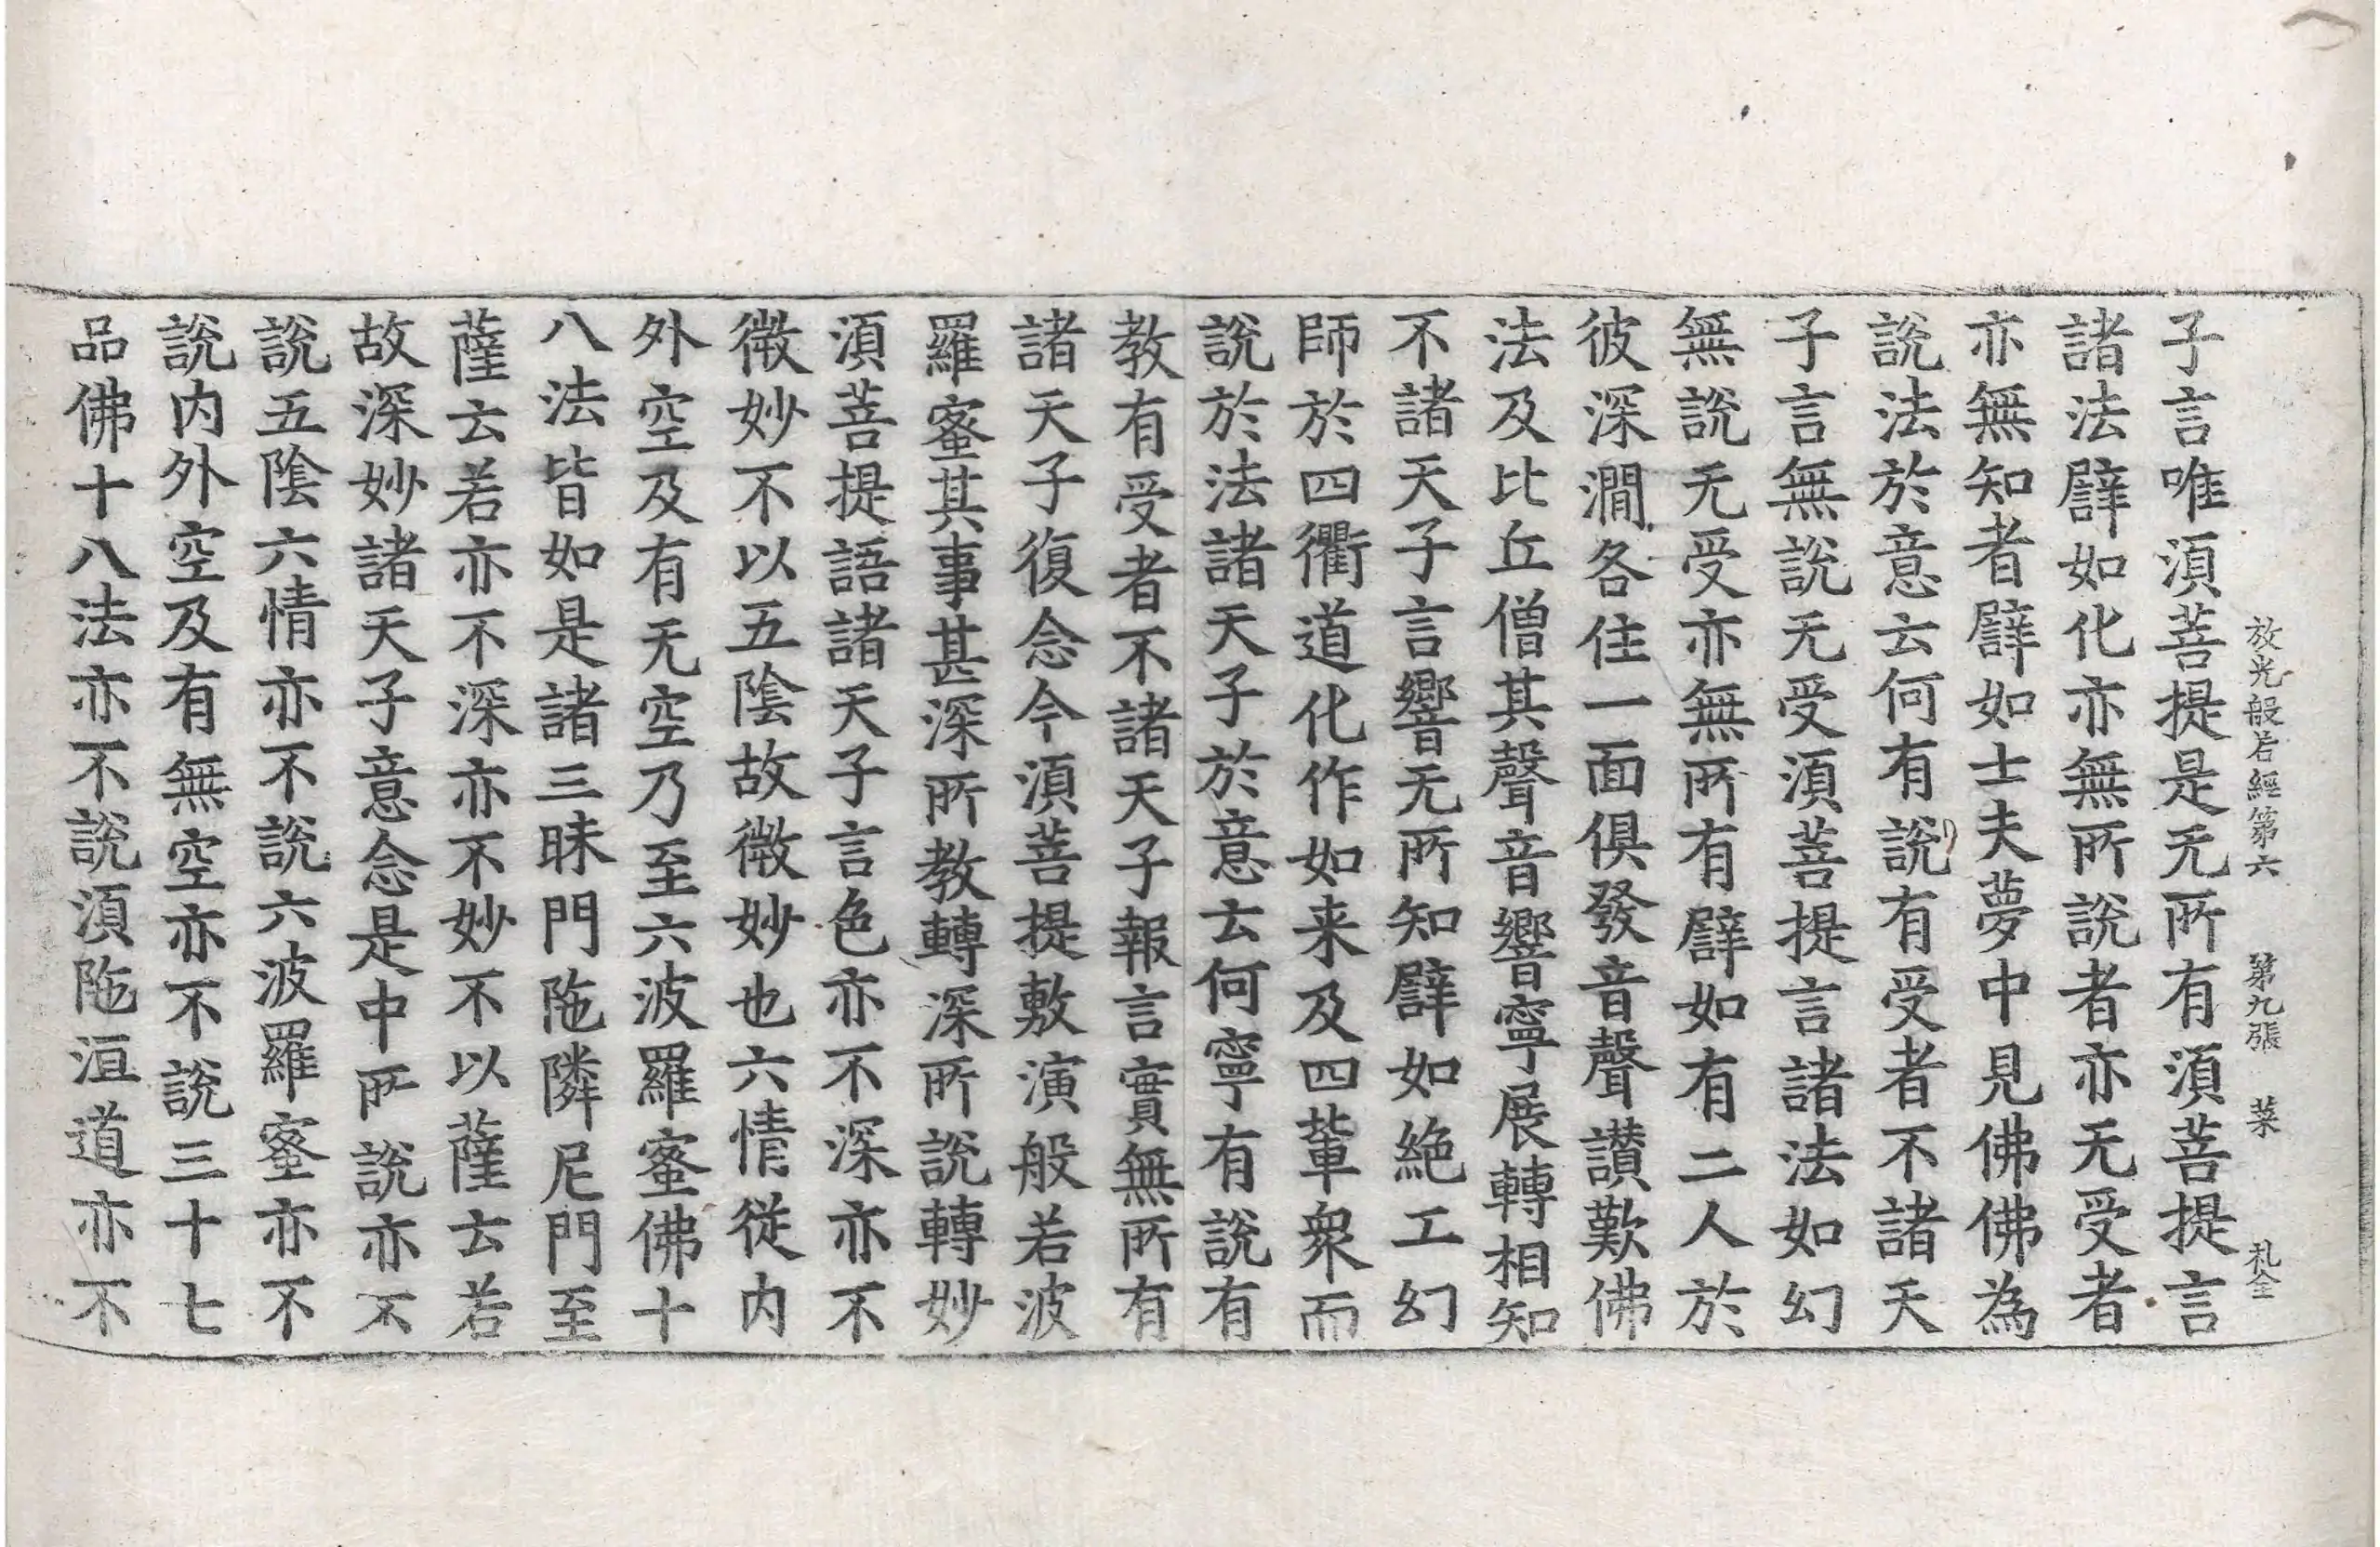 放光般若經第六 第九張 菜 札全
子言唯湏菩提是无所有湏菩提言
諸法譬如化亦無所說者亦无受者
亦無知者譬如士夫夢中見佛佛為
說法於意云何有說有受者不諸天
子言無說无受湏菩提言諸法如幻
無說无受亦無所有譬如有二人於
彼深澗各住一面俱發音聲讃歎佛
法及比丘僧其聲音響寧展轉相知
不諸天子言響无所知譬如絶工幻
師於四衢道化作如来及四軰衆而
說於法諸天子於意云何寧有說有
教有受者不諸天子報言實無所有
諸天子復念今湏菩提敷演般若波
羅蜜其事甚深所教轉深所說轉妙
湏菩提語諸天子言色亦不深亦不
微妙不以五陰故微妙也六情從内
外空及有无空乃至六波羅蜜佛十
八法皆如是諸三昧門陁隣尼門至
薩云若亦不深亦不妙不以薩云若
故深妙諸天子意念是中所說亦不
說五陰六情亦不說六波羅蜜亦不
說内外空及有無空亦不說三十七
品佛十八法亦不說湏陁洹道亦不